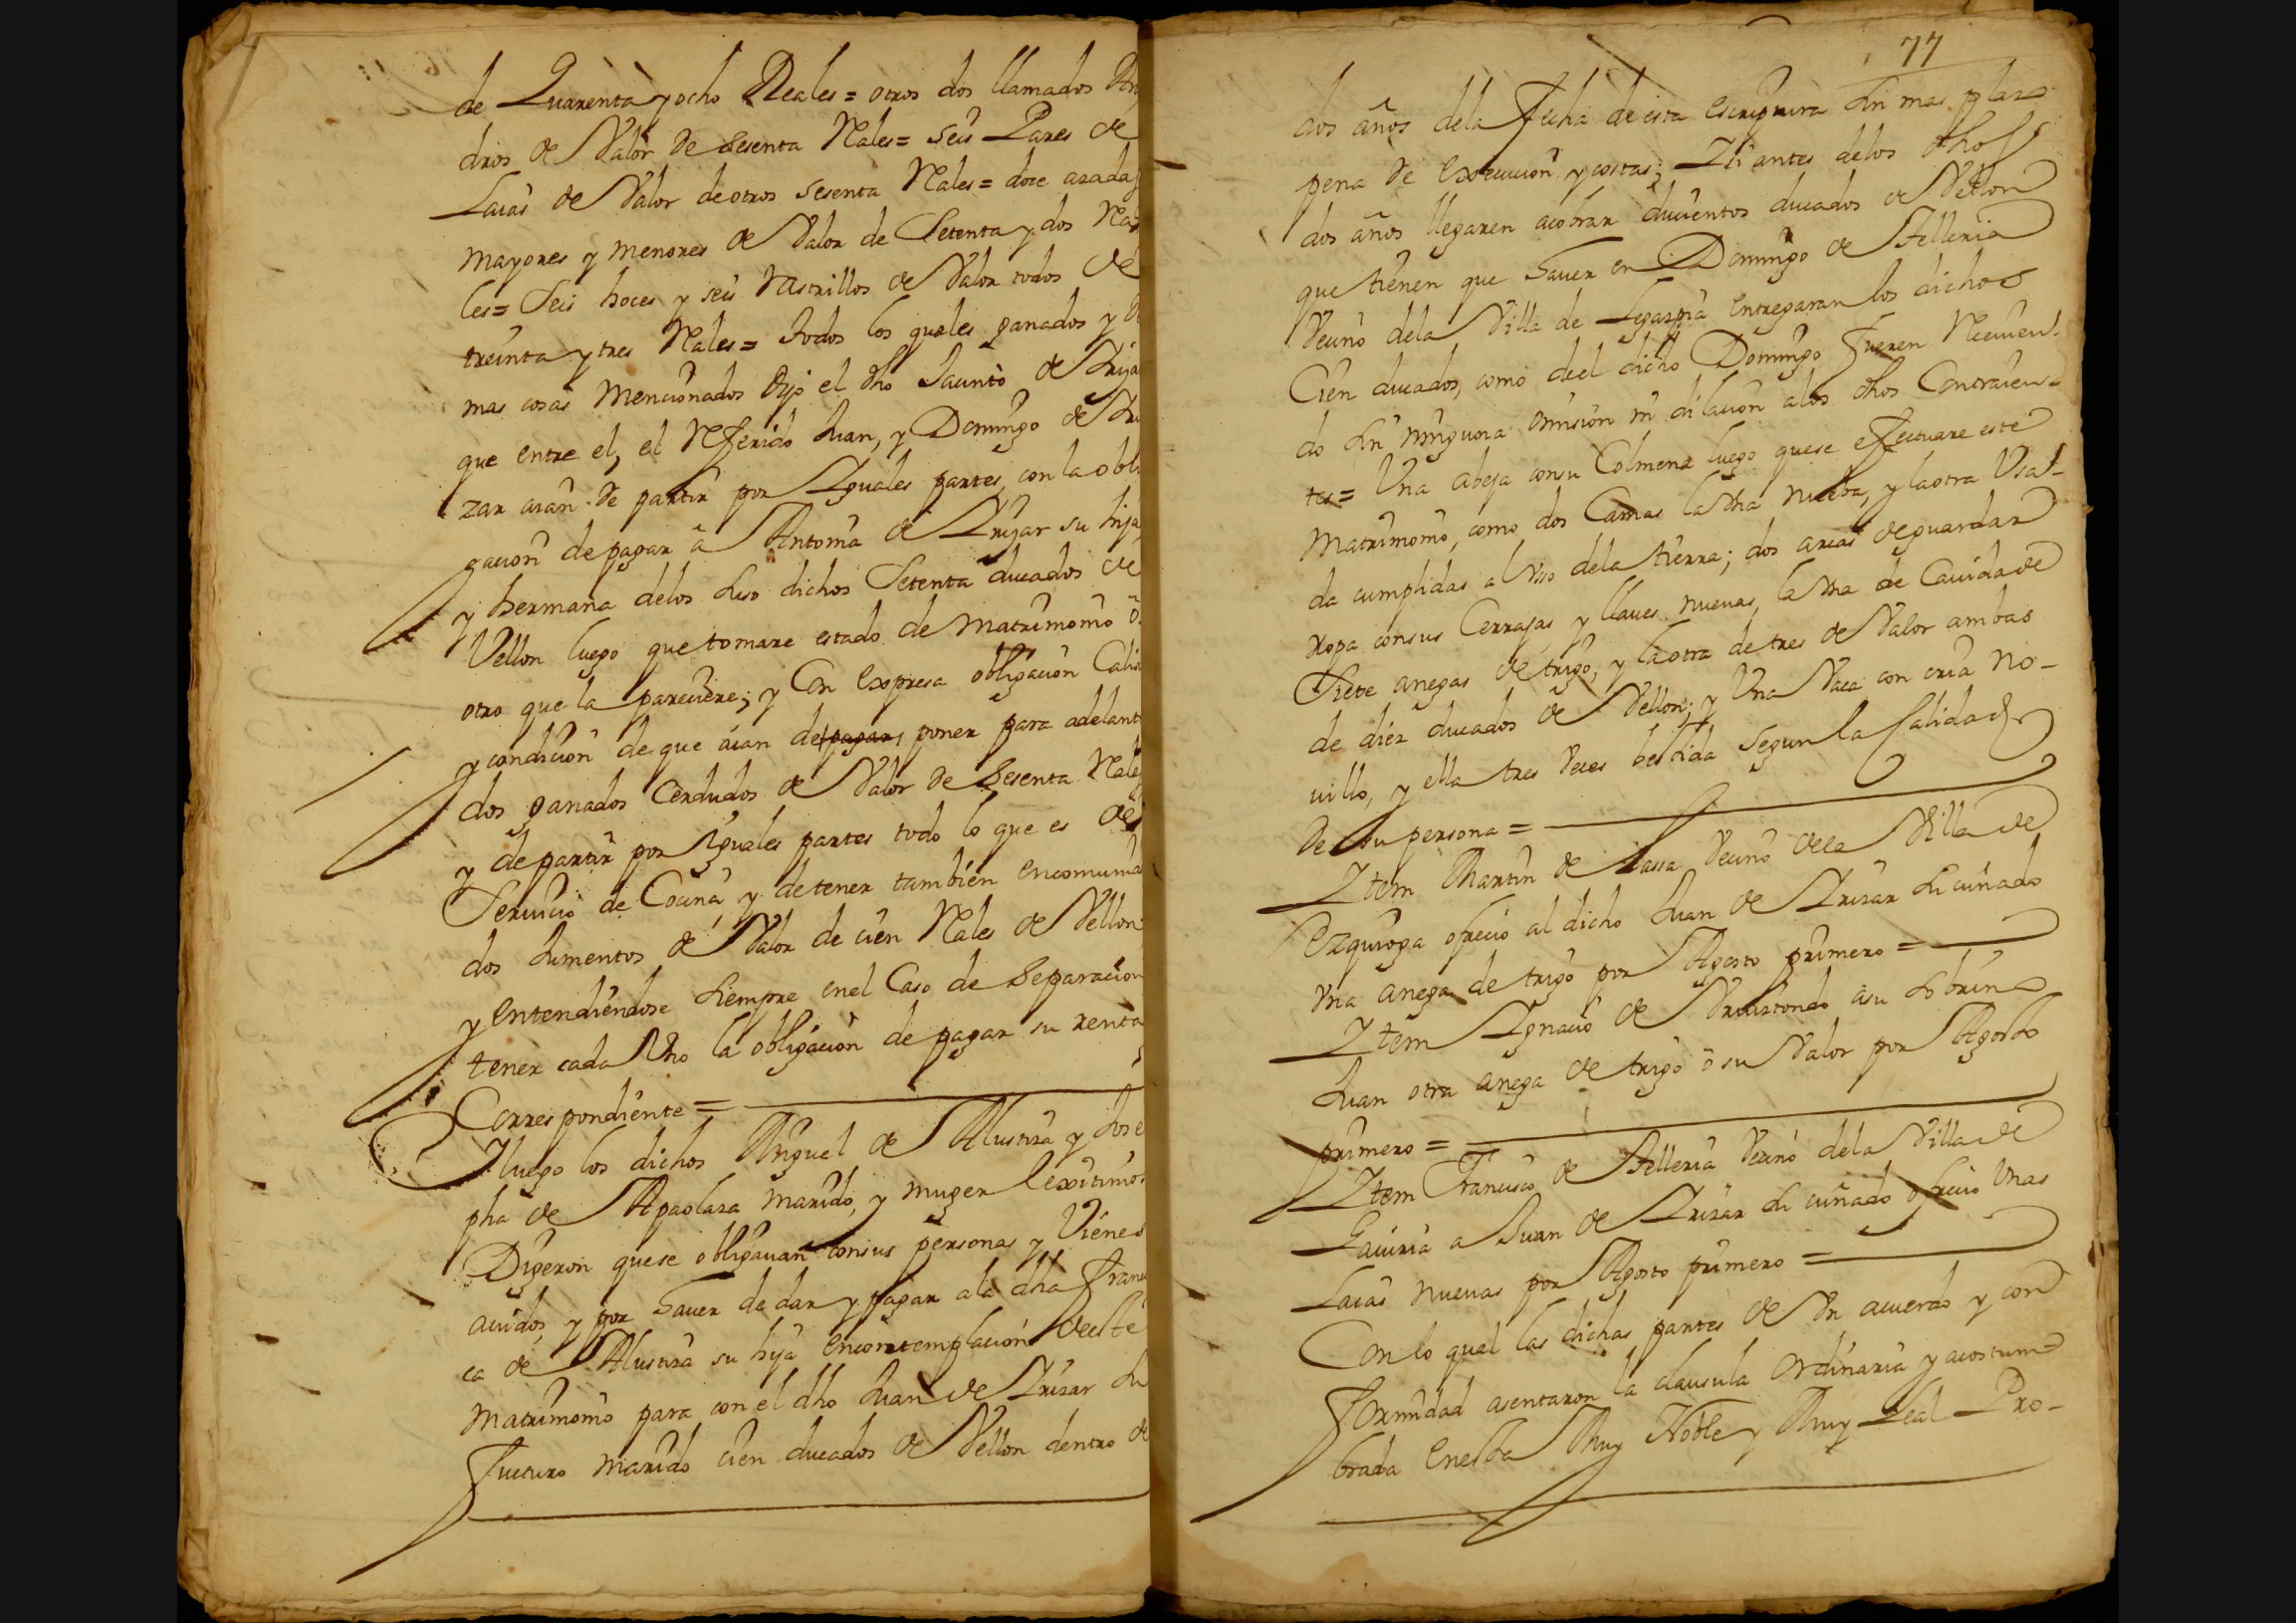 de Quarenta y ocho Reales = otros dos llamados
dros de Valor de sesenta Rales = seis Pares de
Laias de Valor de otros sesenta Rales = doce azadas
mayores y menores de Valor de Setenta y dos Rea
les = Seis hoces y seis Rastrillos de Valor todos de
treinta y tres Rales = todos los quales ganados y de
mas cosas mencionados dijo el dho Jacinto de Iriza
que entre el, el Referido Juan, y Domingo de Iri
zar aian de partir por Yguales partes, con la obli
gacion de pagar â Antonia de Yrizar su hija,
y hermana delos suso dichos Setenta ducados de
Vellon luego que tomare estado de matrimonio ô
otro que la pareciere; y Con expresa obligacion Calid
y condicion de que aian de pagar, poner para adelant
dos ganados Cerdudos de Valor de sesenta Rales
y de partir por Yguales partes todo lo que es de
Seruicio de Cocina y de tener tambien encomuni
dos Jumentos de Valor de cien Rales de Vellon,
y entendiendose siempre enel Caso de separacion
tener cada Vno la obligacion de pagar su renta
Correspondiente =
Y luego los dichos Miguel de Alustiza y Jose
pha de Apaolaza marido, y muger lexitimos
Digeron quese obligauan consus personas y Vienes
auidos, y por hauer de dar y pagar ala dha Franci
ca de Alustiza su hija encontemplacion deeste
matrimonio para con el dho Juan de Yrizar su
Futuro marido cien ducados de Vellon dentro de
77
dos años dela Fecha de esta escriptura sin mas plazo
pena de execucion y costas; Y si antes delos dhos
dos años llegaren acobrar ducientos ducados de Vellon
que tienen que hauer en Domingo de Telleria
Vecino dela Villa de Legazpia entregaran los dichos
Cien ducados, como de el dicho Domingo fueren Reciuien
do sin ninguna omision ni dilacion alos dhos Contraien
tes = Una abeja consu Colmena luego quese efectuare este
Matrimonio, como dos Camas la Vna nueba, y la otra Vsa
da cumplidas al Vso dela tierra; dos arcas deguardar
ropa consus Cerrajas y llaues nueuas, la Vna de Cauida de
Siete anegas de trigo, y la otra de tres de Valor ambas
de diez ducados de Vellon; y Vna Vaca con cria no-
uillo, y ella tres Veces bestida segun la Calidad
de su persona =
Ytem Martin de Lassa Vecino dela Villa de
Ezquioga ofrecio al dicho Juan de Yrizar su cuñado
Vna anega de trigo por Agosto primero =
Ytem Ygnacio de Vrcistondo âsu sobrino
Juan otra anega de trigo ô su Valor por Agosto
primero =
Ytem Francisco de Telleria Vecino dela Villa de
Gauiria a Juan de Yrizar su cuñado ofrecio Vnas
Laias nueuas por Agosto primero =
Con lo qual las dichas partes de Vn acuerdo y con
formidad asentaron la clausula Ordinaria y acostum
brada enesta Muy Noble y Muy Leal Pro-